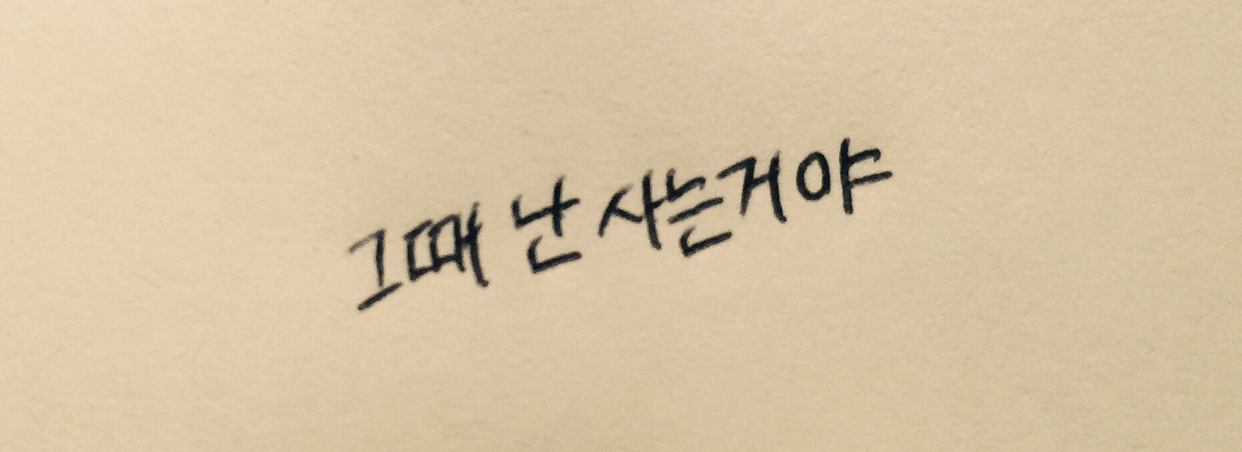 그때 난 사는거야